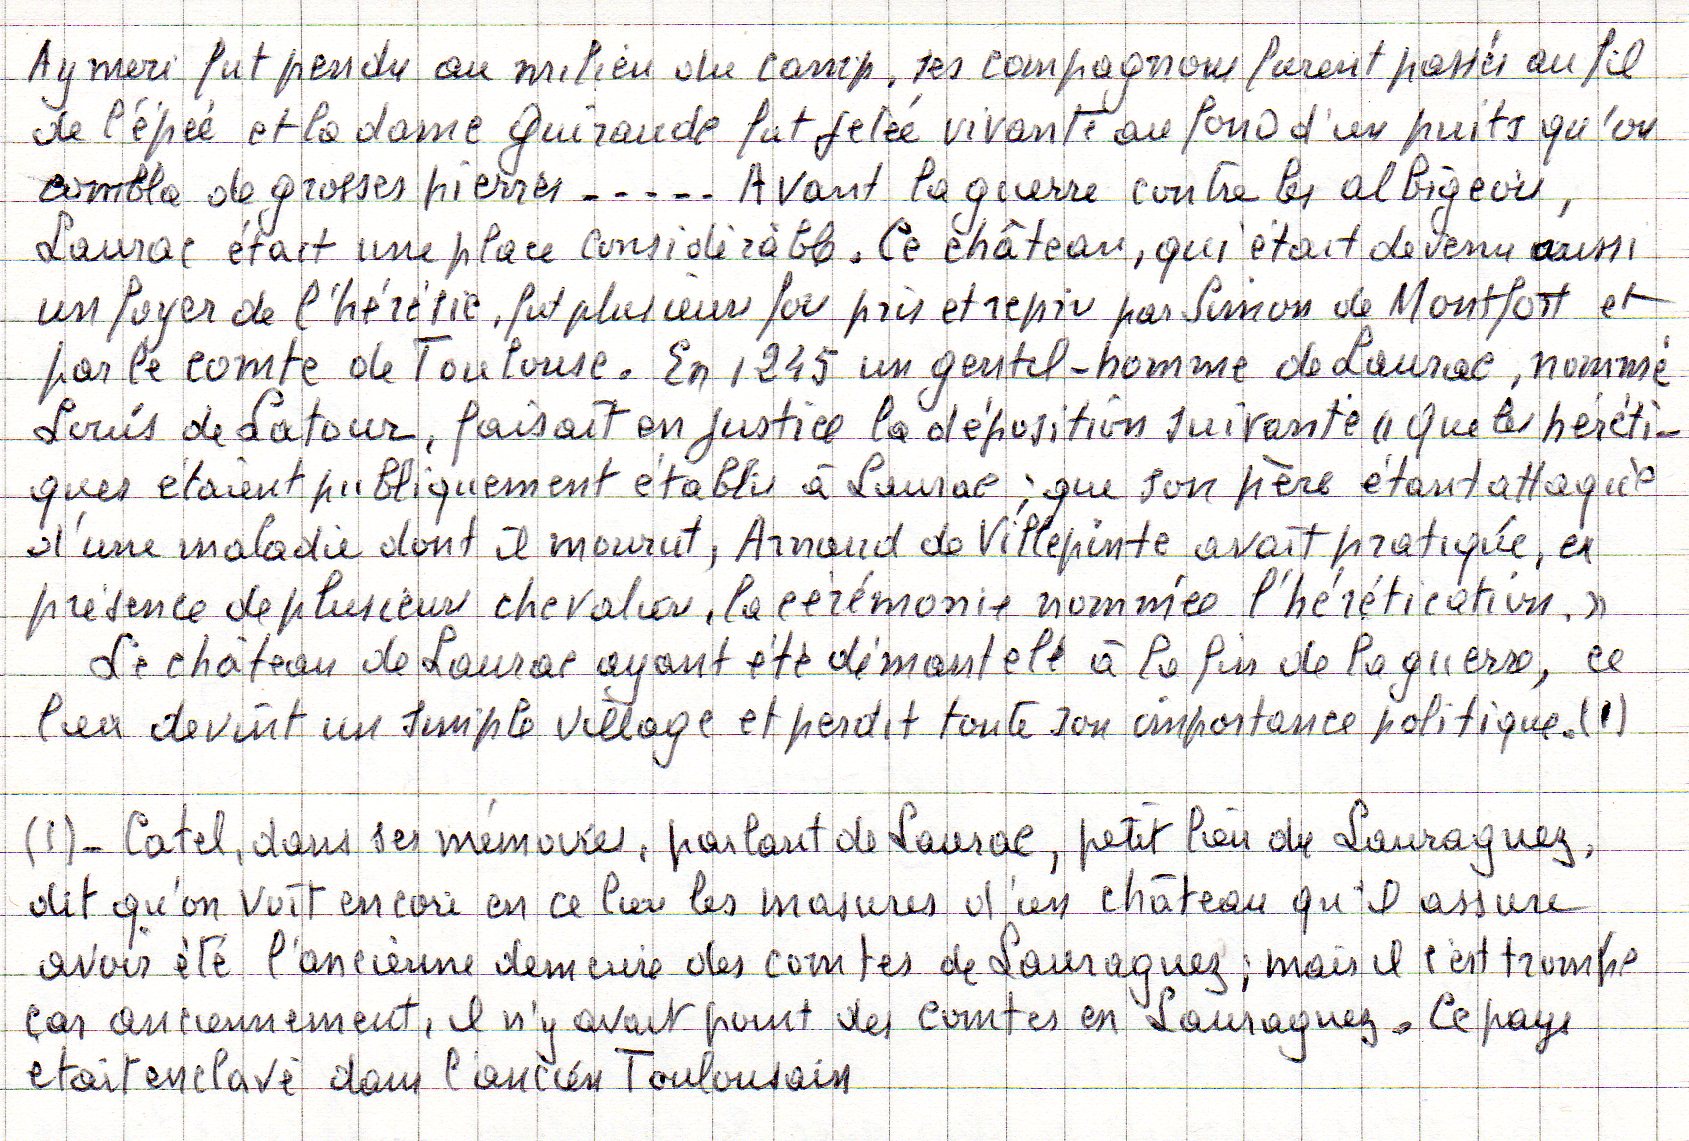 Aymeri fut pendu au milieu du camp, ses compagnons furent passés au fil
de l'épée et la dame Guiraude fut jetée vivante au fond d'un puits qu'on
combla de grosses pierres ----- Avant la guerre contre les albigeois,
Laurac était une place considérable. Ce château, qui était devenu aussi
un foyer de l'hérésie, fut plusieurs fois pris et repris par Simon de Montfort et
par le comte de Toulouse. En 1245 un gentil-homme de Laurac, nommé
Louis de Latour, faisait en justice la déposition suivante " que les héréti-
ques étaient publiquement établis à Laurac ; que son père étant attaqué
d'une maladie dont il mourut, Arnaud de Villepinte avait pratiquée, en
présence de plusieurs chevaliers, la cérémonie nommée l'hérétication. "
Le château de Laurac ayant été démantelé à la fin de la guerre, ce
lieu devint un simple village et perdit toute son importance politique. (1)
(1) - Catel, dans ses mémoires, parlant de Laurac, petit lieu du Lauraguez,
dit qu'on voit encore en ce lieu les masures d'un château qu'il assure
avoir été l'ancienne demeure des comtes de Lauraguez ; mais il c'est trompé
car anciennement, il n'y avait point des comtes en Lauraguez. Ce pays
etait enclavé dans l'ancien Toulousain